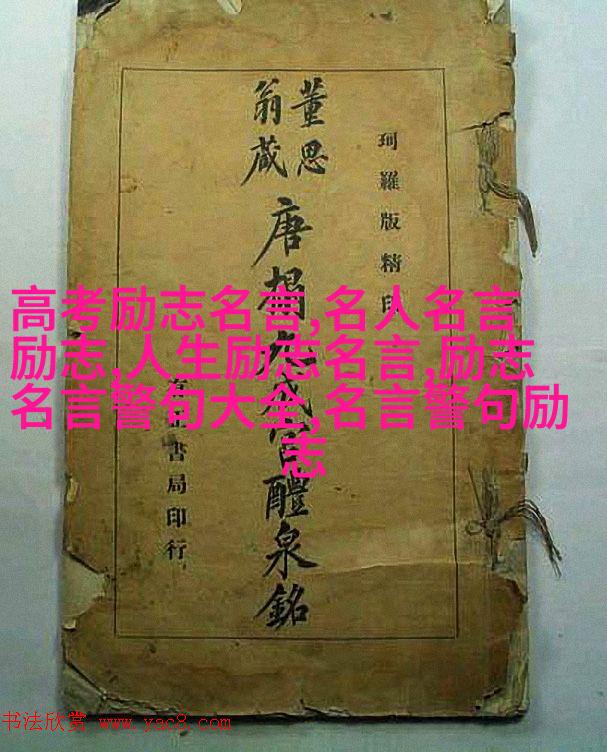 珂羅版精印
董思
翁藏
唐搨九成宮醴泉銘
書局印行
高考励志名言,名人名言
励志,人生励志名言,励志
名言警句大全,名言警句励
志
书法欣赏 www.yac8.com